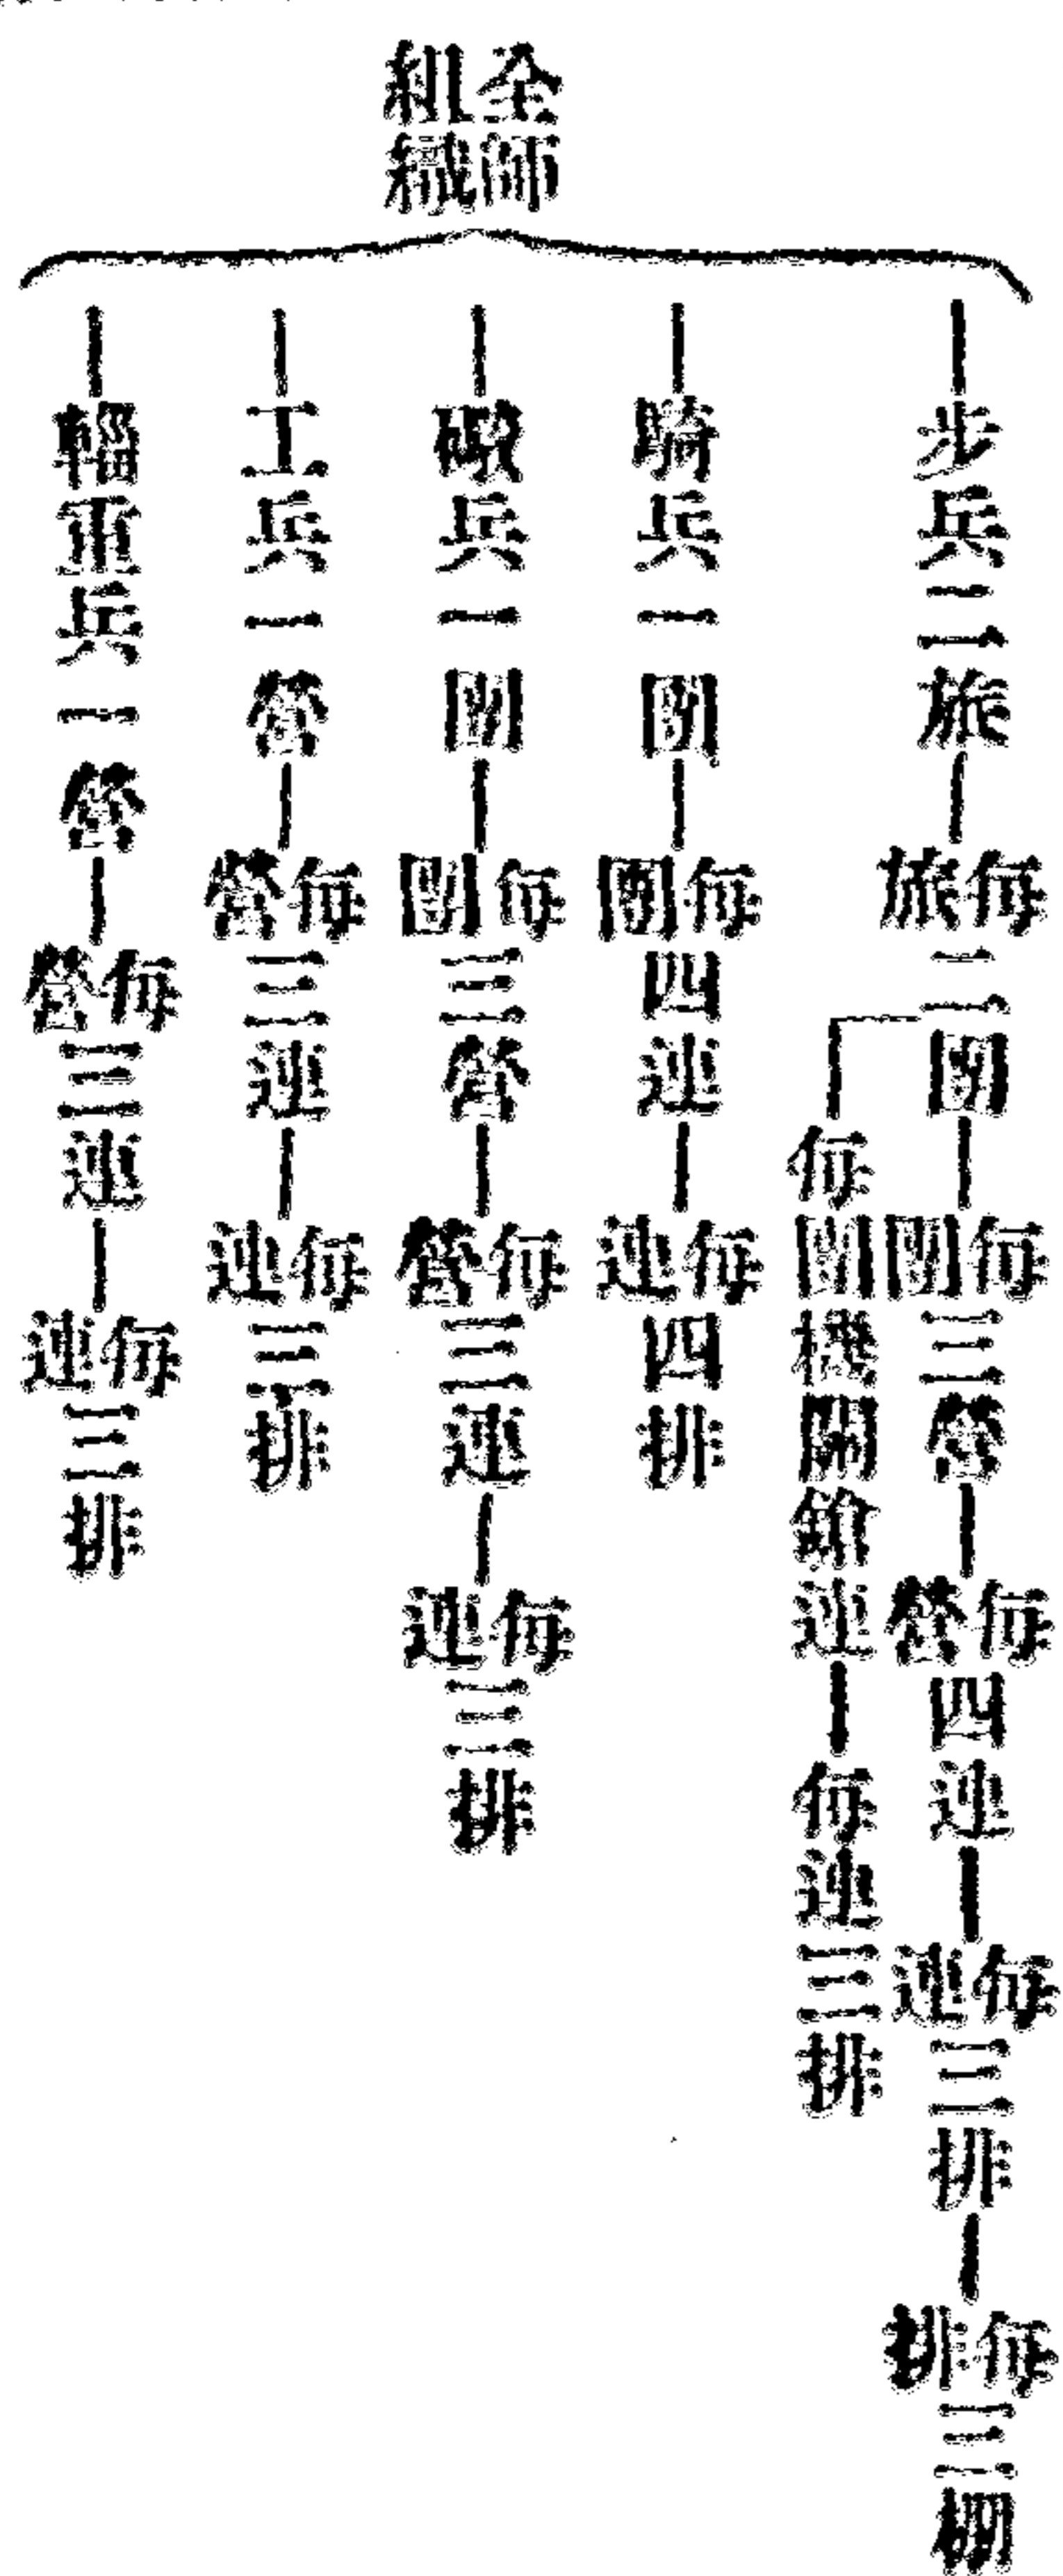 全師
組織
步兵二旅
每旅
二團
每團
三營
每營
四連
每連
三排
每排
三棚
每團機關鎗連
每連三排
騎兵一團
每團
四連
每連
四排
礮兵一團
每團
三營
每營
三連
每連
三排
工兵一營
每營
三連
每連
三排
輜重兵一營
每營
三連
每連
三排